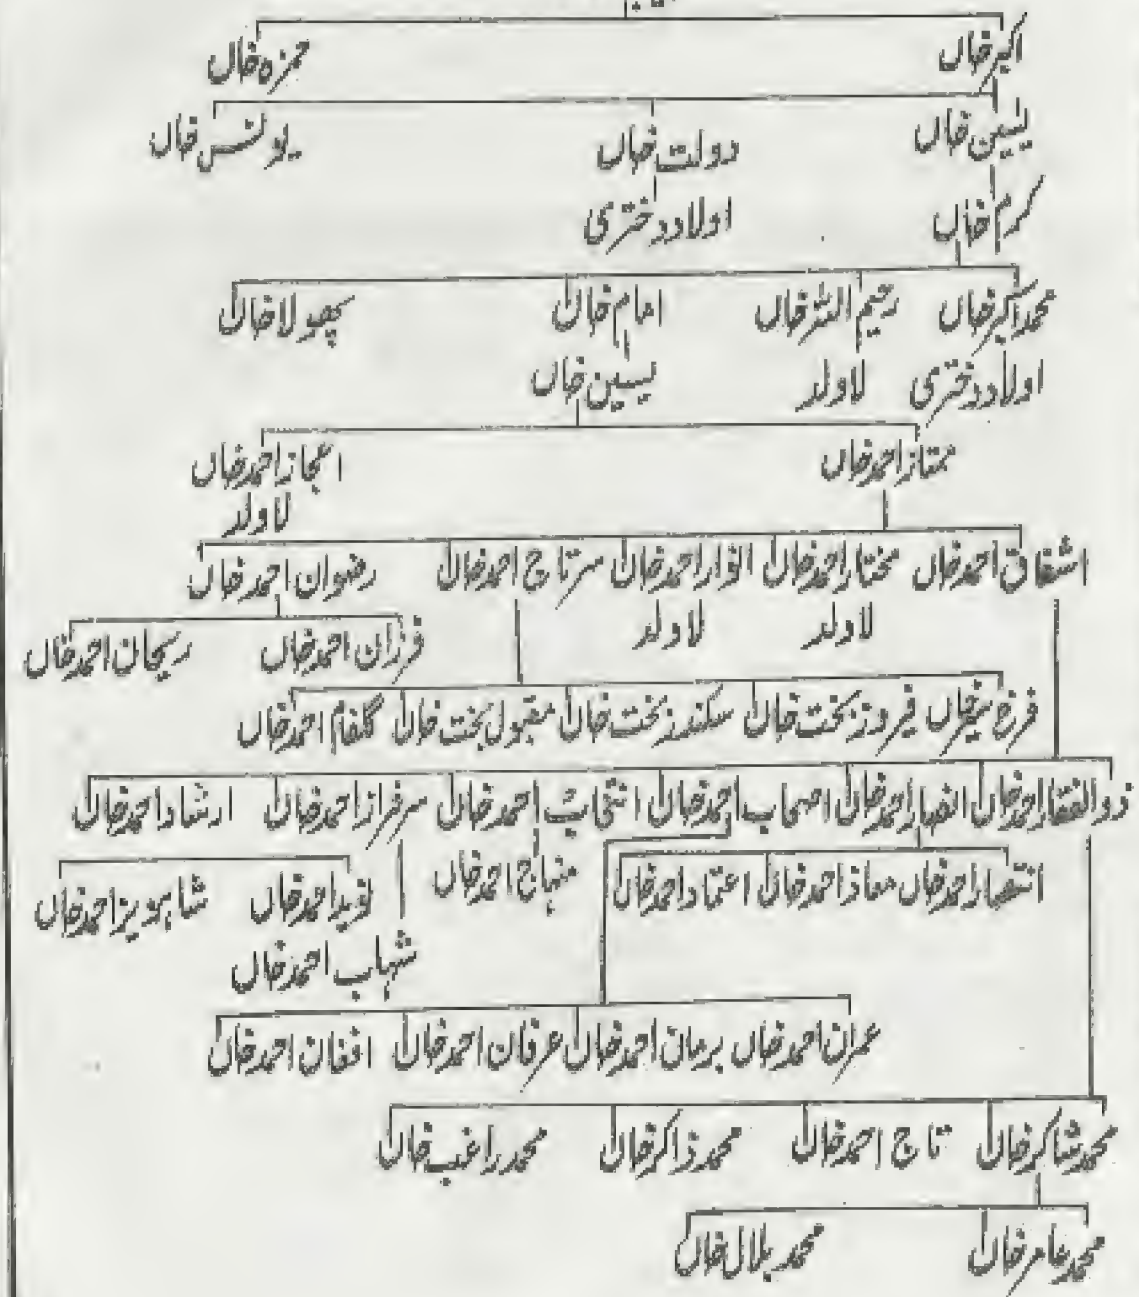 اکبر خاں حمزہ خاں
یٰسین خاں دولت خاں یونس خاں
کرم خاں اولاد دختری
محمد اکبر خاں رحیم اللہ خاں امام خاں چھولا خاں
اولاد دختری لاولد یٰسین خاں
ممتاز احمد خاں اعجاز احمد خاں
لاولد
اشفاق احمد خاں مختار احمد خاں انوار احمد خاں سرتاج احمد خاں رضوان احمد خاں
لاولد لاولد فرزان احمد خاں ریحان احمد خاں
فرخ سیر خاں فیروز بخت خاں سکندر بخت خاں مقبول بخت خاں گلفام احمد خاں
ذوالفقار احمد خاں انصار احمد خاں اصحاب احمد خاں انتخاب احمد خاں سرفراز احمد خاں ارشاد احمد خاں
انتصار احمد خاں معاذ احمد خاں اعتماد احمد خاں منہاج احمد خاں نوید احمد خاں شاہویز احمد خاں
شہاب احمد خاں
عمران احمد خاں برہان احمد خاں عرفان احمد خاں افغان احمد خاں
محمد شاکر خاں تاج احمد خاں محمد ذاکر خاں محمد راغب خاں
محمد عامر خاں محمد بلال خاں